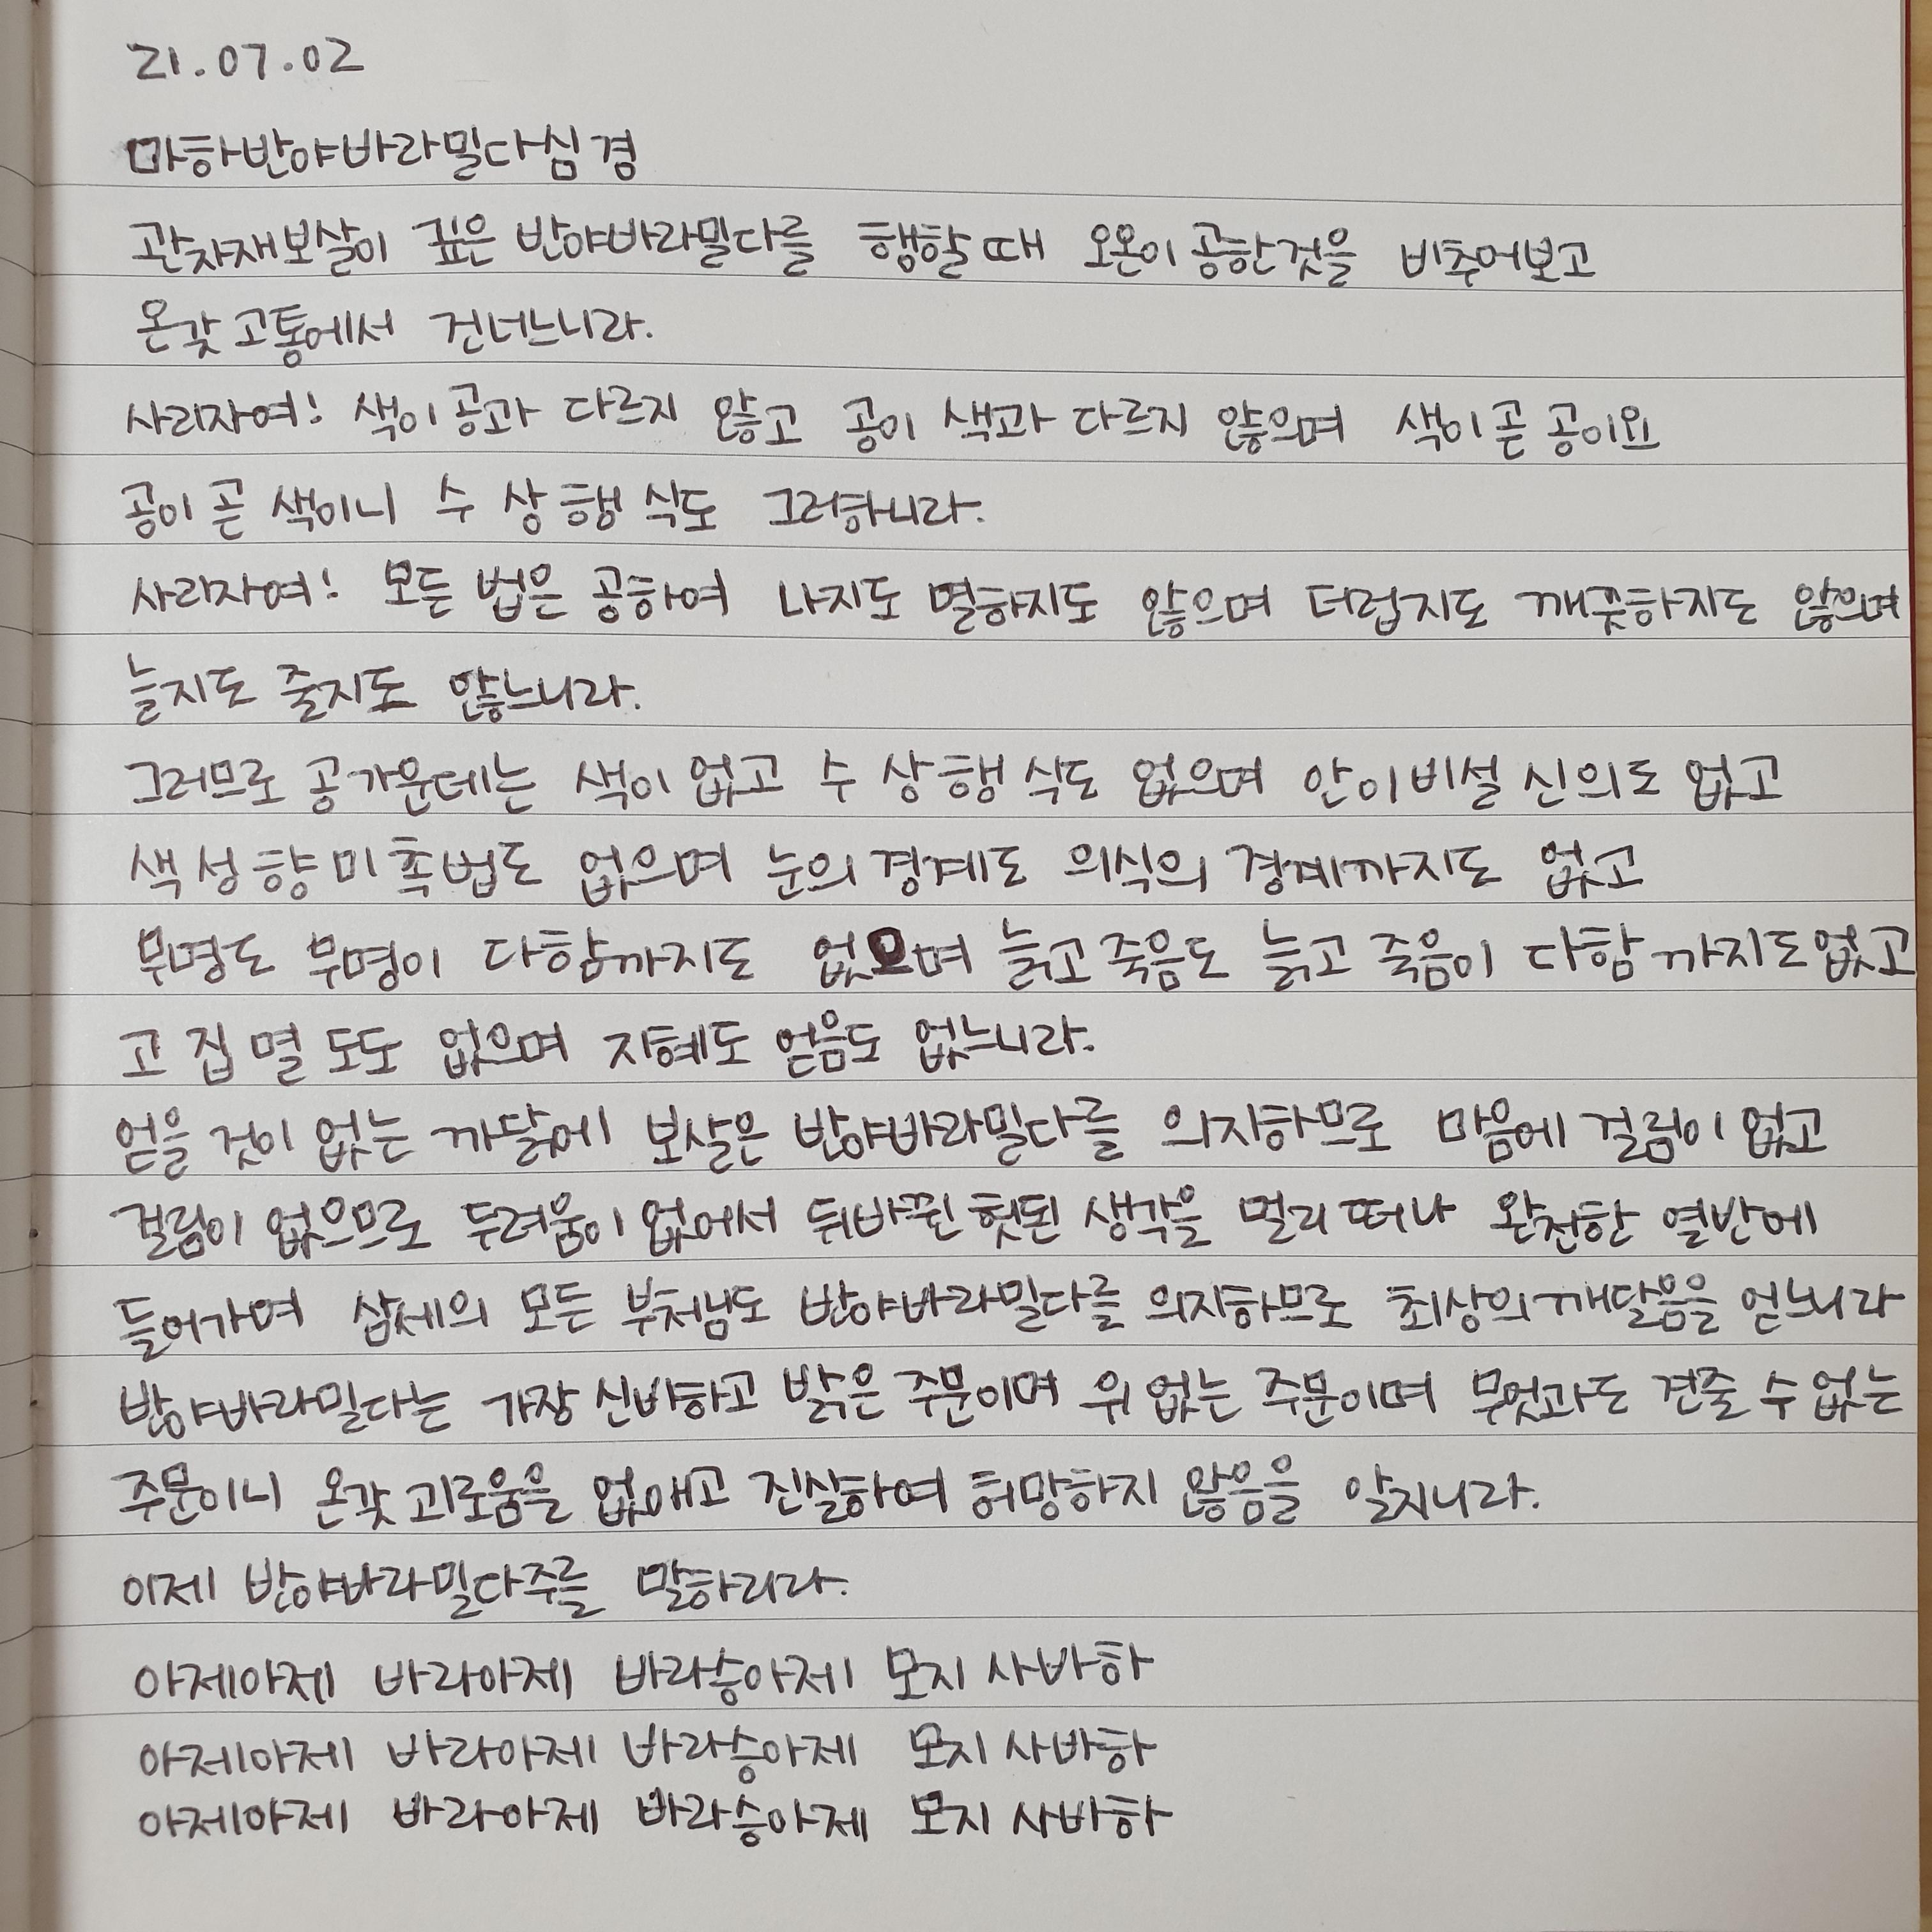 21.07.02
마하반야바라밀다심경
관자재보살이 깊은 반야바라밀다를 행할 때 오온이 공한것을 비추어보고
온갖 고통에서 건너느니라.
사리자여! 색이 공과 다르지 않고 공이 색과 다르지 않으며 색이 곧 공이요
공이 곧 색이니 수 상 행 식도 그러하니라.
사리자여! 모든 법은 공하여 나지도 멸하지도 않으며 더럽지도 깨끗하지도 않으며
늘지도 줄지도 않느니라.
그러므로 공 가운데는 색이 없고 수 상 행 식도 없으며 안 이 비 설 신 의도 없고
색 성 향 미 촉 법도 없으며 눈의 경계도 의식의 경계까지도 없고
무명도 무명이 다함까지도 없으며 늙고 죽음도 늙고 죽음이 다함 까지도 없고
고 집 멸 도도 없으며 지혜도 얻음도 없느니라.
얻을 것이 없는 까닭에 보살은 반야바라밀다를 의지하므로 마음에 걸림이 없고
걸림이 없으므로 두려움이 없어서 뒤바뀐 헛된 생각을 멀리 떠나 완전한 열반에
들어가며 삼세의 모든 부처님도 반야바라밀다를 의지하므로 최상의 깨달음을 얻느니라
반야바라밀다는 가장 신비하고 밝은 주문이며 위 없는 주문이며 무엇과도 견줄 수 없는
주문이니 온갖 괴로움을 없애고 진실하여 허망하지 않음을 알지니라.
이제 반야바라밀다주를 말하리라.
아제아제 바라아제 바라승아제 모지 사바하
아제아제 바라아제 바라승아제 모지 사바하
아제아제 바라아제 바라승아제 모지 사바하